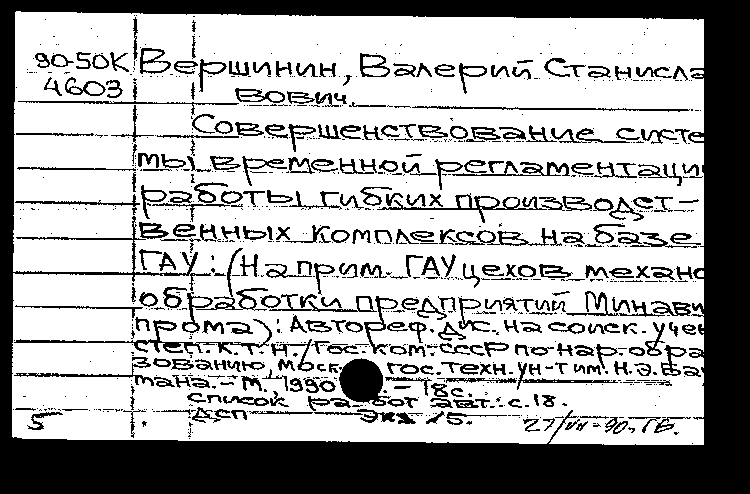 90-50К Вершинин, Валерий Станисла
4603 вович.
Совершенствование систе
мы временной регламентаци
работы гибких производст-
венных комплексов на базе
ГАУ: (На прим. ГАУ цехов механо
обработки предприятий Минави
прома): Автореф. дис. на соиск. учен
степ. к.т.н. / Гос. ком. СССР по нар. обра
зованию, Моск. гос. техн. ун-т им. Н.Э. Бау
мана. - М. 1990 . - 18с.
Список работ авт.: с. 18.
ДСП Экз 15.
5 27/VII-90. ГБ.